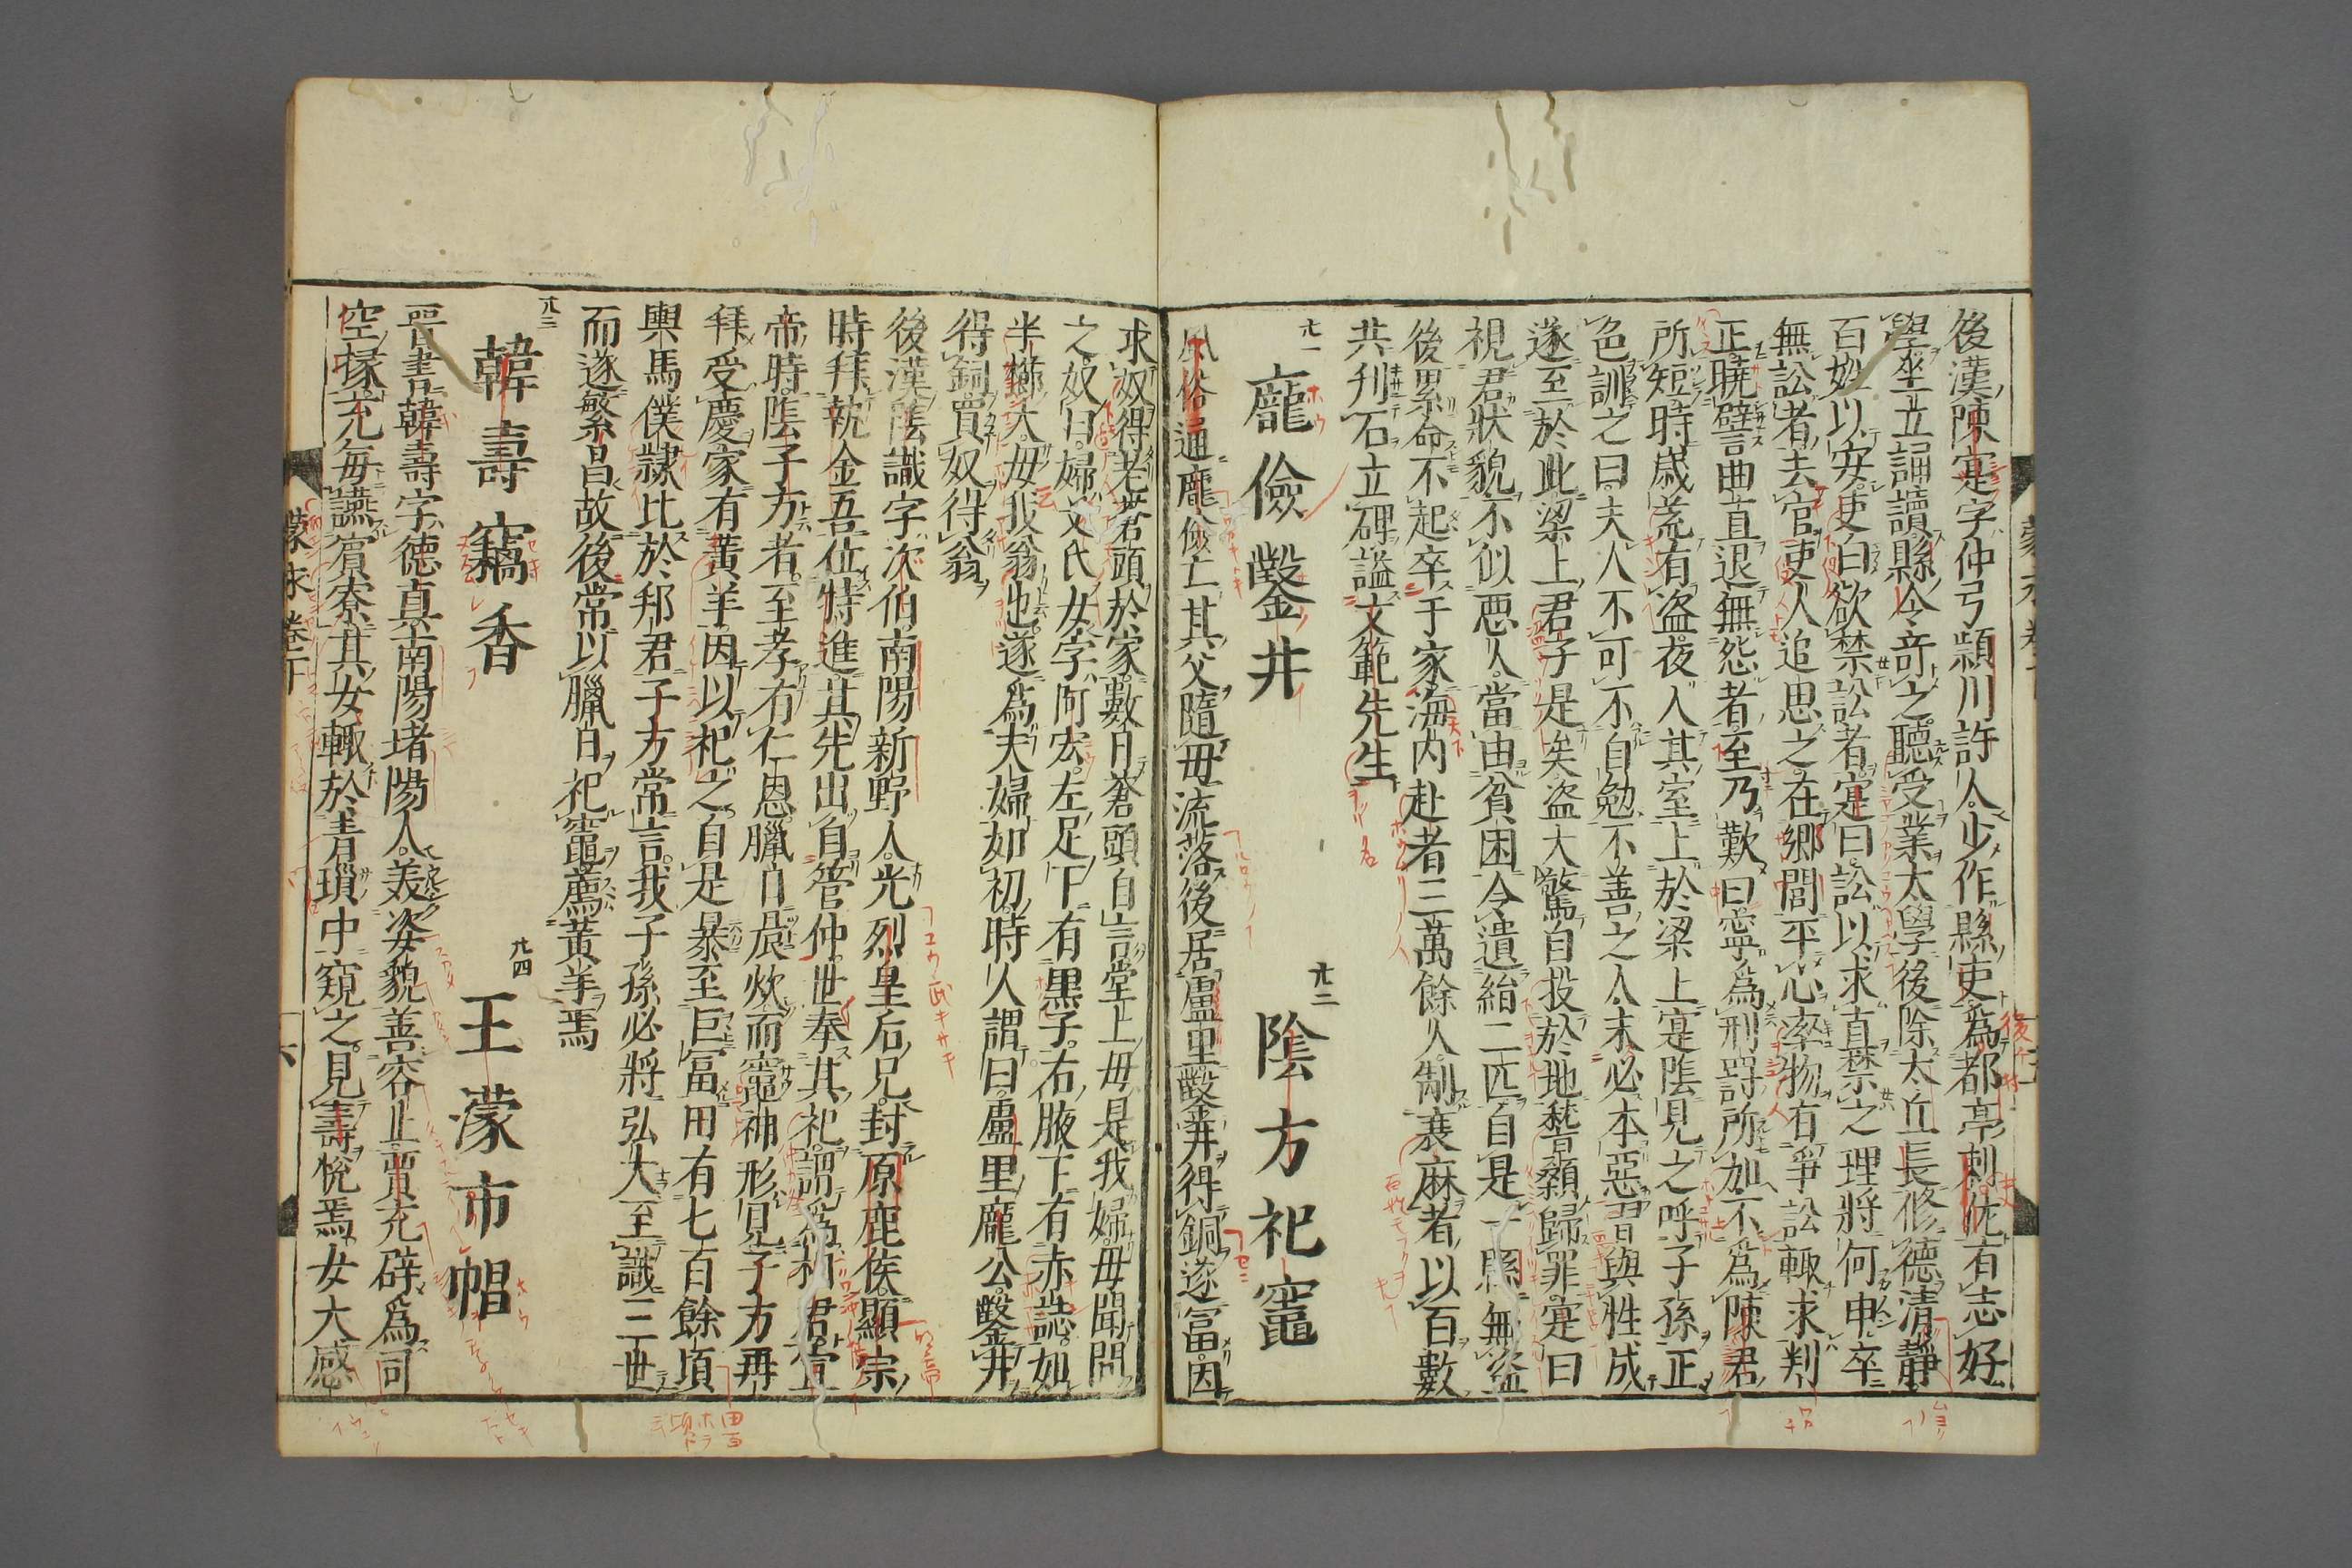 後漢陳寔字仲弓潁川許人少作縣吏爲都亭刺佐有志好
學坐立誦讀縣令奇之聽受業太學後除太丘長修德清靜
百姓以安吏白欲禁訟者寔曰訟以求直禁之理將何申卒
無訟者去官吏人追思之在鄉閭平心率物有爭訟輒求判
正曉譬曲直退無怨者至乃歎曰寧爲刑罸所加不爲陳君
所短時歳荒有盗夜入其室上於梁上寔隂見之呼子孫正
色訓之曰夫人不可不自勉不善之人未必本惡習與性成
遂至於此梁上君子是矣盗大驚自投於地稽顙歸罪寔曰
視君狀貌不似惡人當由貧困令遺絹二匹自是一縣無盗
後累命不起卒于家海内赴者三萬餘人制衰麻者以百數
共刋石立碑謚文範先生
龐儉鑿井 隂方祀竈
風俗通龐儉亡其父隨母流落後居廬里鑿井得銅遂富因
求奴得老蒼頭於家數日蒼頭自言堂上母是我婦母聞問
之奴曰婦艾氏女字阿宏左足下有黒子右腋下有赤誌如
半櫛大母我翁也遂爲夫婦如初時人謂曰廬里龐公鑿井
得銅買奴得翁
後漢隂識字次伯南陽新野人光烈皇后兄封原鹿侯顯宗
時拜執金吾位特進其先出自管仲世奉其祀謂爲相君宣
帝時隂子方者至孝有仁恩臘日晨炊而竈神形見子方再
拜受慶家有黄羊因以祀之自是暴至巨冨田有七百餘頃
輿馬僕隸比於邦君子方常言我子孫必將弘大至識三世
而遂繁昌故後常以臘日祀竈薦黄羊焉
韓壽竊香 王濛市帽
晋書韓壽字德真南陽堵陽人美姿貌善容止賈充辟爲司
空掾充毎讌賓寮其女輒於青瑣中窺之見壽悅焉女大感
蒙求卷下